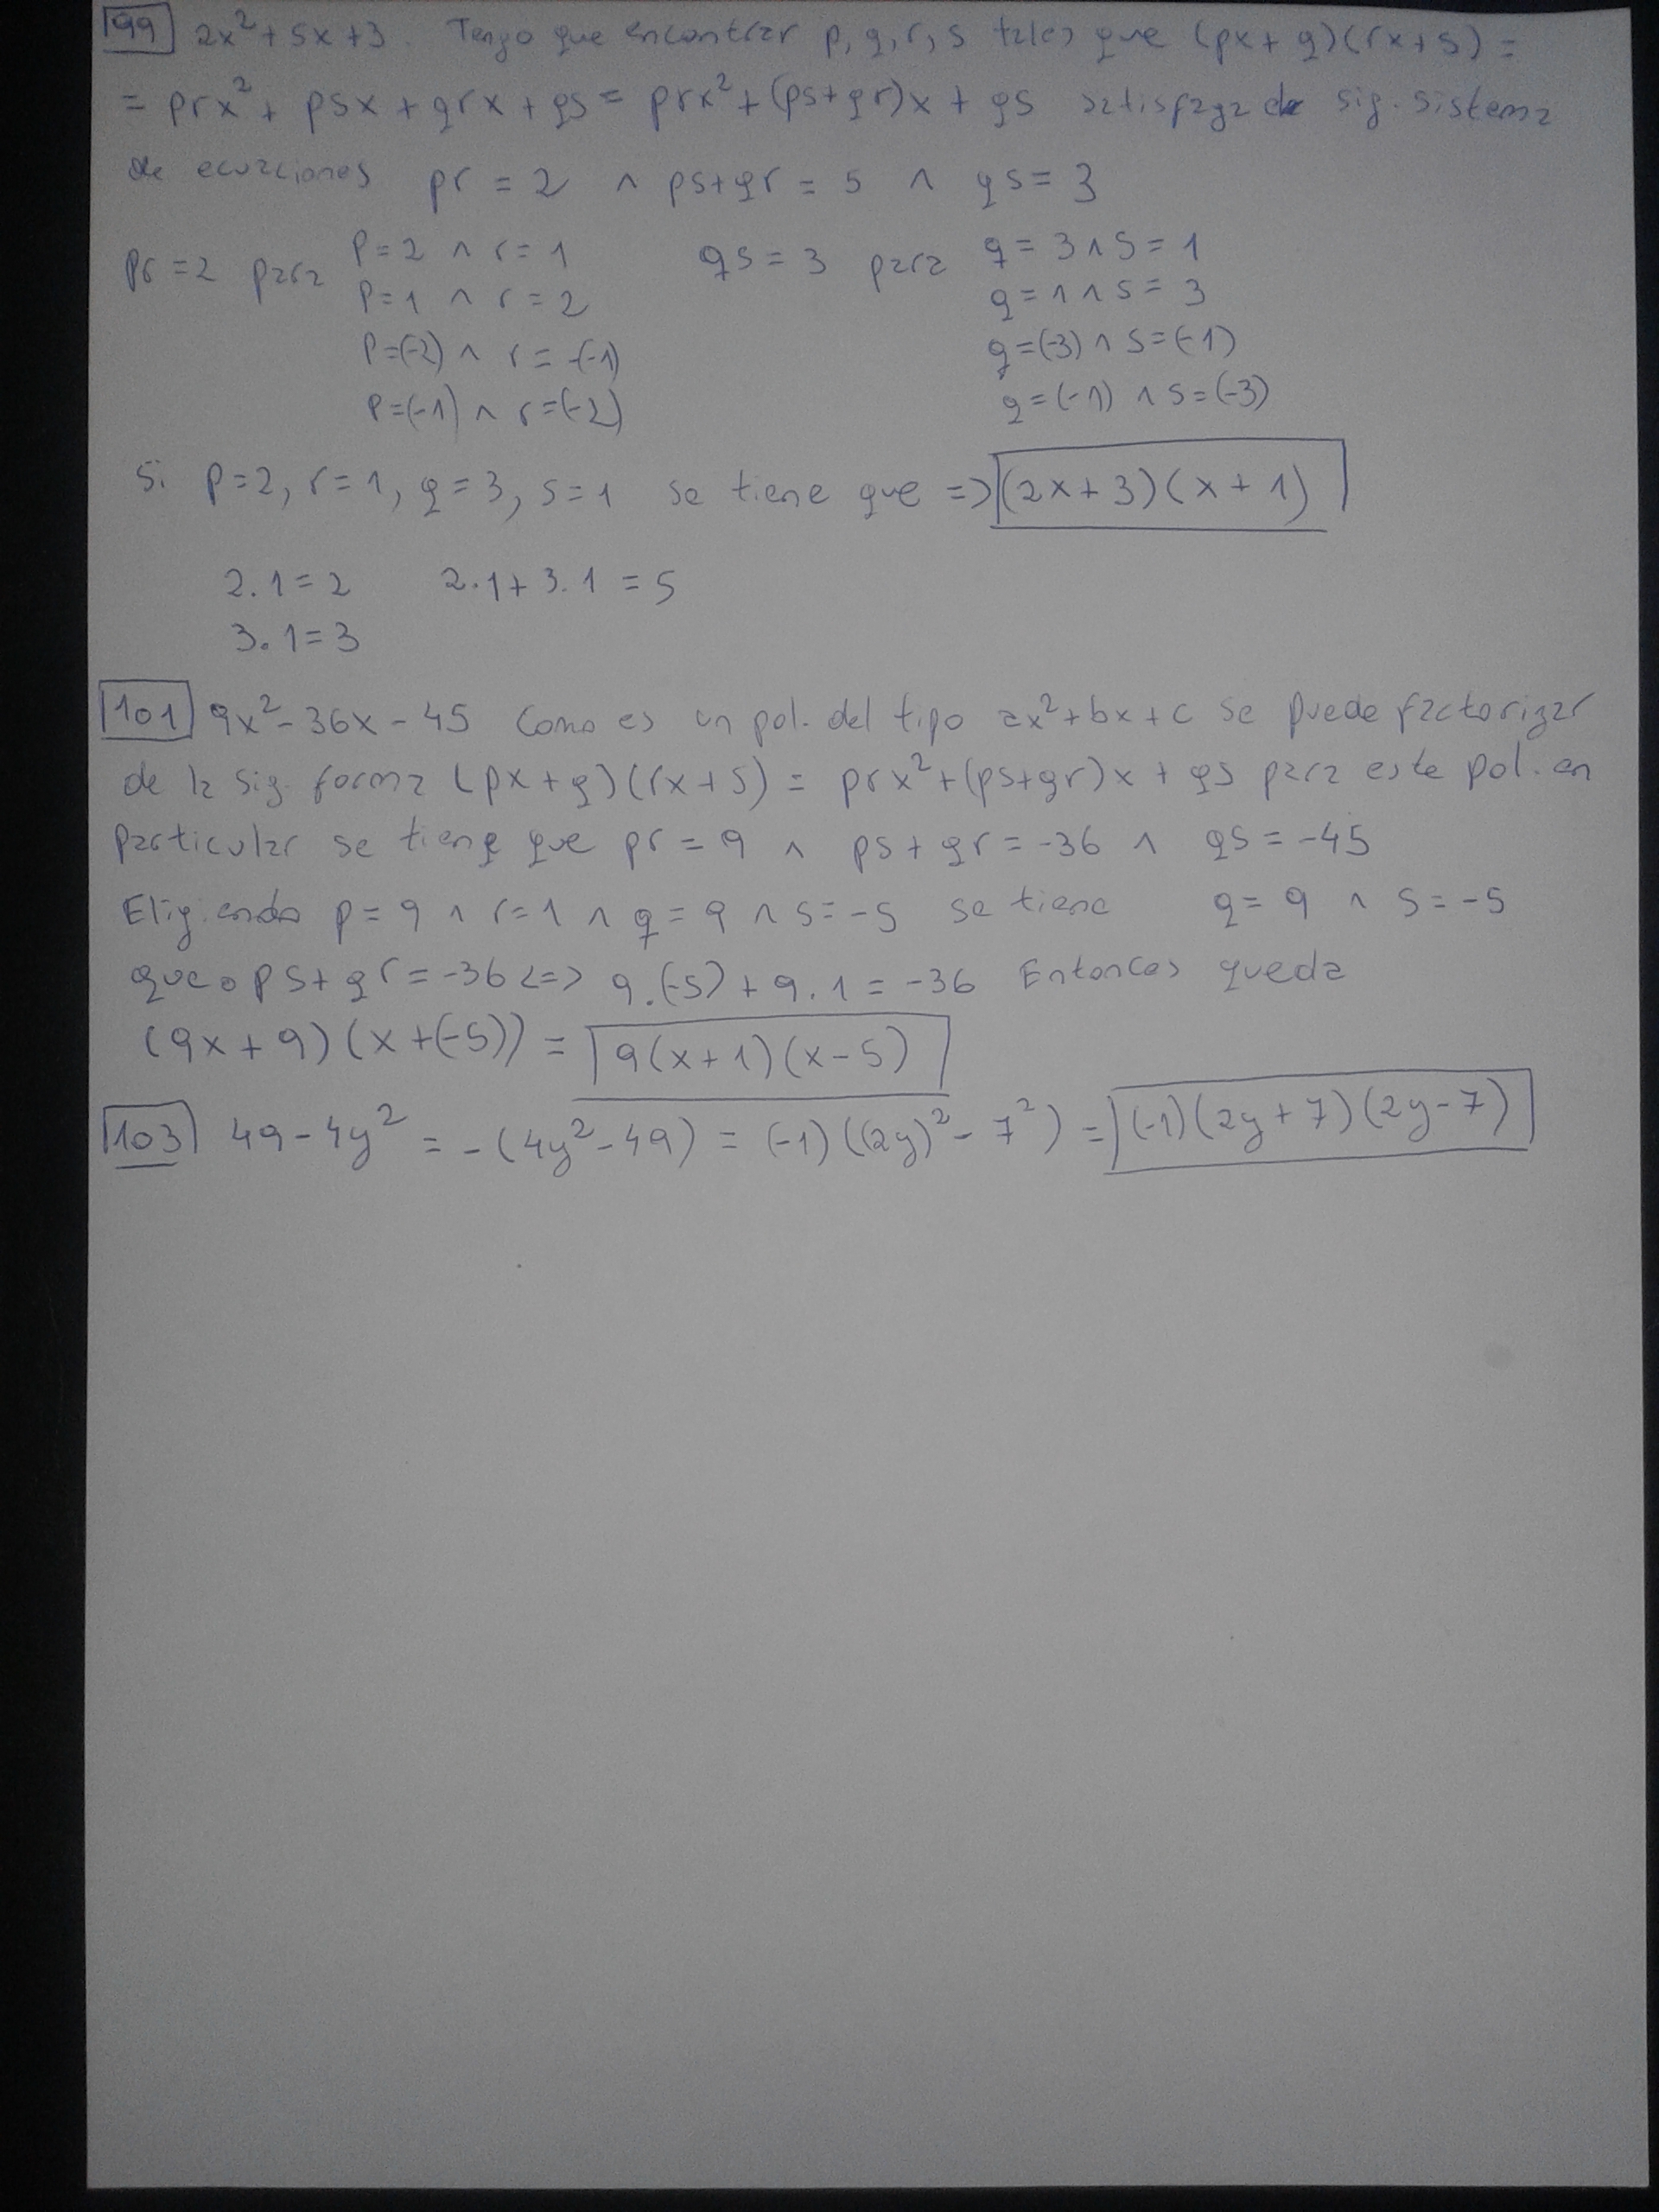 99 2x² + 5x + 3. Tengo que encontrar p, q, r, s tales que (px + q)(rx + s) =
= prx² + psx + qrx + qs = prx² + (ps + qr)x + qs satisfaga el sig. sistema
de ecuaciones pr = 2 ∧ ps + qr = 5 ∧ qs = 3
pr = 2 para p = 2 ∧ r = 1 qs = 3 para q = 3 ∧ s = 1
p = 1 ∧ r = 2 q = 1 ∧ s = 3
p = (-2) ∧ r = -(-1) q = (-3) ∧ s = (-1)
p = (-1) ∧ r = (-2) q = (-1) ∧ s = (-3)
Si p = 2, r = 1, q = 3, s = 1 se tiene que => (2x + 3)(x + 1)
2.1 = 2 2.1 + 3.1 = 5
3.1 = 3
101 9x² - 36x - 45 Como es un pol. del tipo ax² + bx + c se puede factorizar
de la sig. forma (px + q)(rx + s) = prx² + (ps + qr)x + qs para este pol. en
particular se tiene que pr = 9 ∧ ps + qr = -36 ∧ qs = -45
Eligiendo p = 9 ∧ r = 1 ∧ q = 9 ∧ s = -5 se tiene q = 9 ∧ s = -5
que ps + qr = -36 <=> 9.(-5) + 9.1 = -36 Entonces queda
(9x + 9)(x + (-5)) = 9(x + 1)(x - 5)
103 49 - 4y² = -(4y² - 49) = (-1)((2y)² - 7²) = (-1)(2y + 7)(2y - 7)